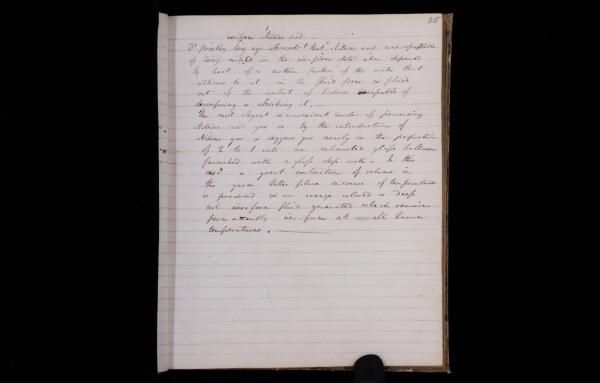 35
aeriform Nitrous acid. —
Dr Priestley long ago shewed that Nitrous acid was capable
of being exhibited in the aeriform state when deprived
by heat of a certain portion of the water that
adheres to it in the fluid form & placed
out of the contact of bodies incapable of
decomposing or absorbing it. —
The most elegant & convenient mode of procuring
Nitrous acid gas is by the introduction of
Nitrous gas & oxygene gas nearly in the proportion
of 2 to 1 into an exhausted glass balloon
furnished with a glass stop cock. In this
a great contraction of volume in
the gases takes place increase of temperature
is produced & an orange coloured or deep
red aeriform fluid generated which remains
permanently at all known
temperatures. —